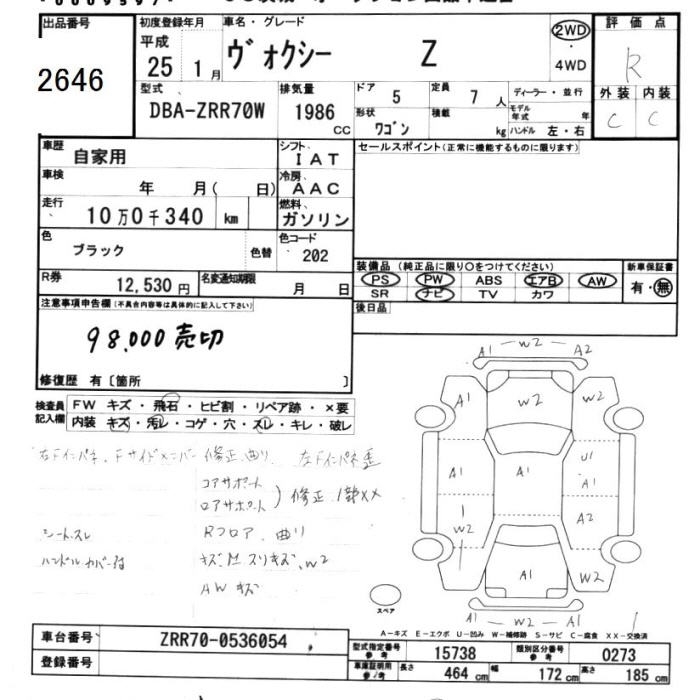 出品番号
2646
初度登録年月
平成
25 1月
車名・グレード
ヴォクシー Z
2WD
・
4WD
評価点
R
外装 内装
C C
型式
DBA-ZRR70W
排気量
1986 CC
ドア 5
定員 7 人
形状 ワゴン
積載 kg
ディーラー・並行
モデル年式 年
ハンドル 左・右
車歴 自家用
シフト I A T
車検 年 月( 日)
冷房 A A C
走行 10万0千340 km
燃料 ガソリン
色 ブラック 色替
色コード 202
R券 12,530円
名変通知期限 月 日
セールスポイント(正常に機能するものに限ります)
装備品 (純正品に限り○をつけてください)
PS PW ABS エアB AW
SR ナビ TV カワ
新車保証書
有・無
後日品
注意事項申告欄(不具合内容等は具体的に記入して下さい)
98.000 売切
修復歴 有〔箇所 〕
検査員記入欄
FW キズ・飛石・ヒビ割・リペア跡・×要
内装 キズ・汚レ・コゲ・穴・スレ・キレ・破レ
右Fインパネ、Fサイドメンバー 修正、曲リ 左Fインパネ歪
コアサポート
ロアサポート ) 修正 1部××
シートスレ
Rフロア 曲リ
ハンドルカバー付
キズ スリキズ、W2
AW キズ
A1 W2 A2
A1 W2 W2
A1 A1 U1 A1
W2 A2
A1 W2
A1 W2 A1
スペア
A-キズ E-エクボ U-凹み W-補修跡 S-サビ C-腐食 XX-交換済
車台番号 ZRR70-0536054
登録番号
型式指定番号 参考 15738
類別区分番号 参考 0273
車庫証明用 参考 長さ 464 cm 幅 172 cm 高さ 185 cm